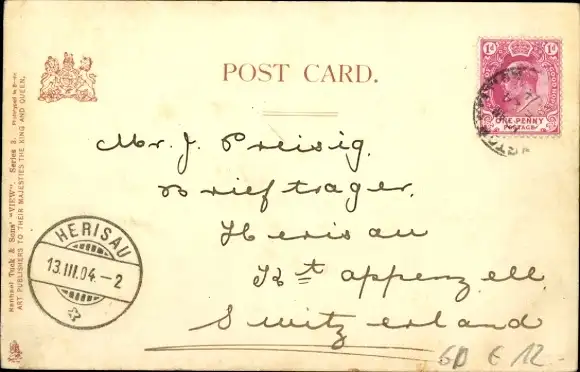 POST CARD.
1d 1d
ONE PENNY
POSTAGE
Mr. J. Preisig.
Briefträger.
Herisau
Kt appenzell.
Switzerland
HERISAU
13.III.04.-2
Raphael Tuck & Sons' "VIEW". Series
ART PUBLISHERS TO THEIR MAJESTIES THE KING AND QUEEN.
€ 12